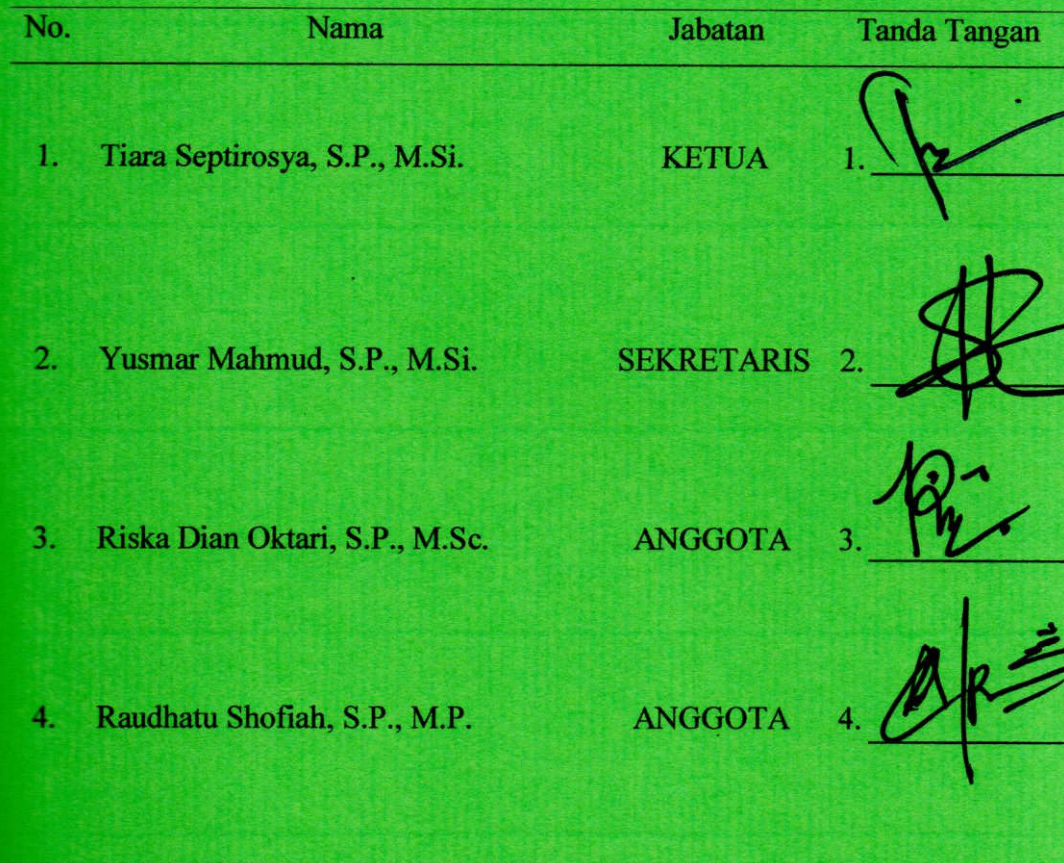 No. Nama Jabatan Tanda Tangan
1. Tiara Septirosya, S.P., M.Si. KETUA 1.
2. Yusmar Mahmud, S.P., M.Si. SEKRETARIS 2.
3. Riska Dian Oktari, S.P., M.Sc. ANGGOTA 3.
4. Raudhatu Shofiah, S.P., M.P. ANGGOTA 4.